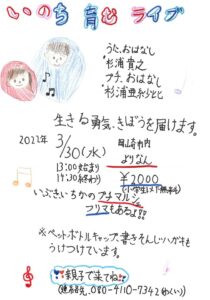 いのち 育む ライブ
うた、おはなし
杉浦貴之
プチ、おはなし
杉浦亜紗と
生きる勇気、きぼうを届けます。
2022年
3/30(水)
岡崎市内
よりなん
13:00始まり
14:30終わり
¥2000
(小学生以下無料)
いぶきいちかのプチマルシェ
フリマもあるよ!!!
※ペットボトルキャップ、書きそんじハガキも
うけつけています。
親子で来てね
(連絡先、080-4110-7342